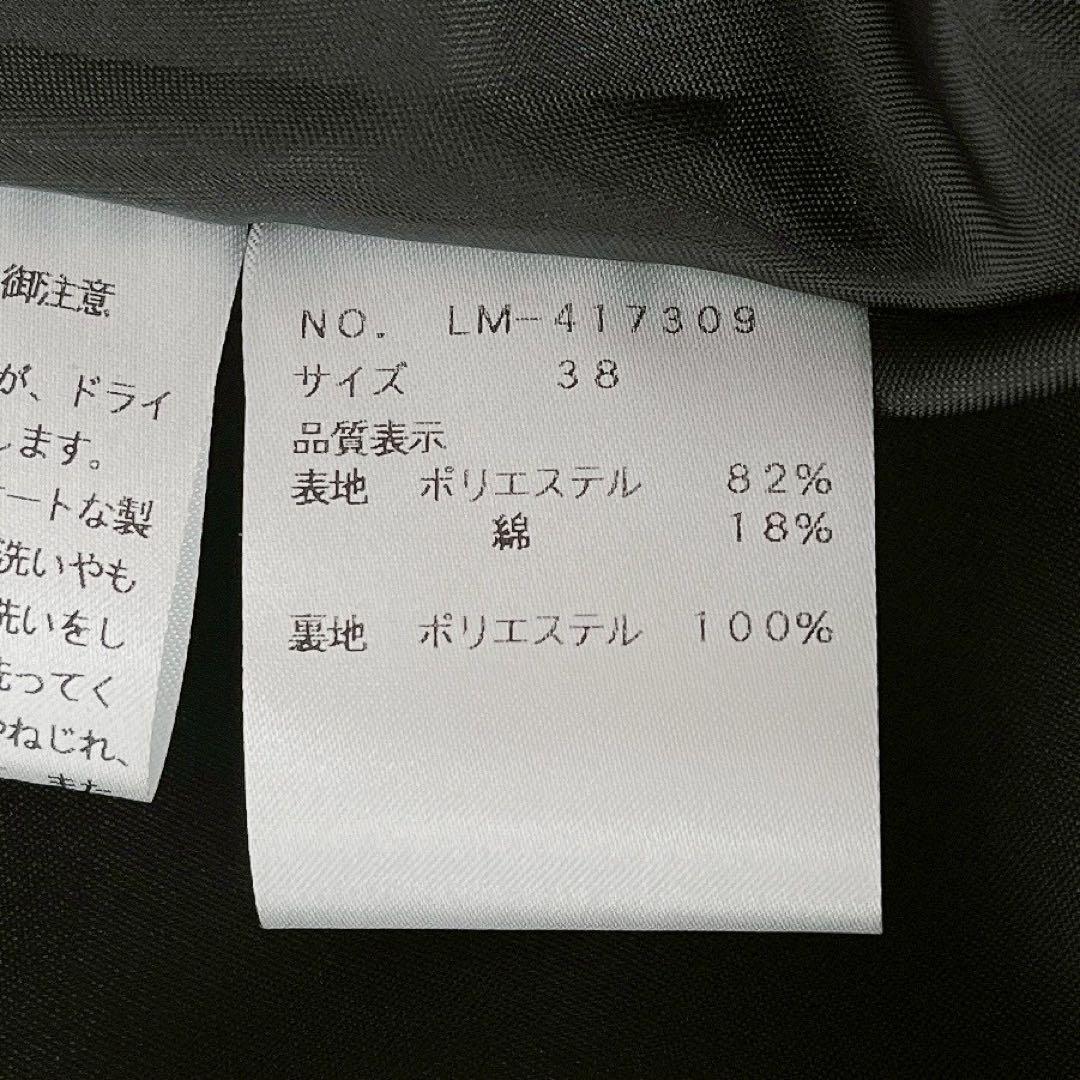 御注意
が、ドライ
します。
ートな製
洗いやも
洗いをし
洗ってく
やねじれ、
また
NO. LM-417309
サイズ 38
品質表示
表地 ポリエステル 82%
綿 18%
裏地 ポリエステル 100%